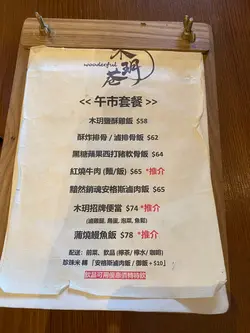 木玥巷
wooderful
<< 午市套餐 >>
木玥鹽酥雞飯 $58
酥炸排骨 / 滷排骨飯 $62
黑糖蘋果西打豬軟骨飯 $64
紅燒牛肉 (麵/飯) $65 *推介
黯然銷魂安格斯滷肉飯 $65
木玥招牌便當 $74 *推介
(滷雞腿, 滷蛋, 泡菜, 魚鬆)
蒲燒鰻魚飯 $78 *推介
配送: 前菜、飲品 (檸茶/ 檸水/ 咖啡)
珍珠米 轉 「安格斯滷肉飯 / 御飯 +$10」
飲品可用優惠價轉特飲